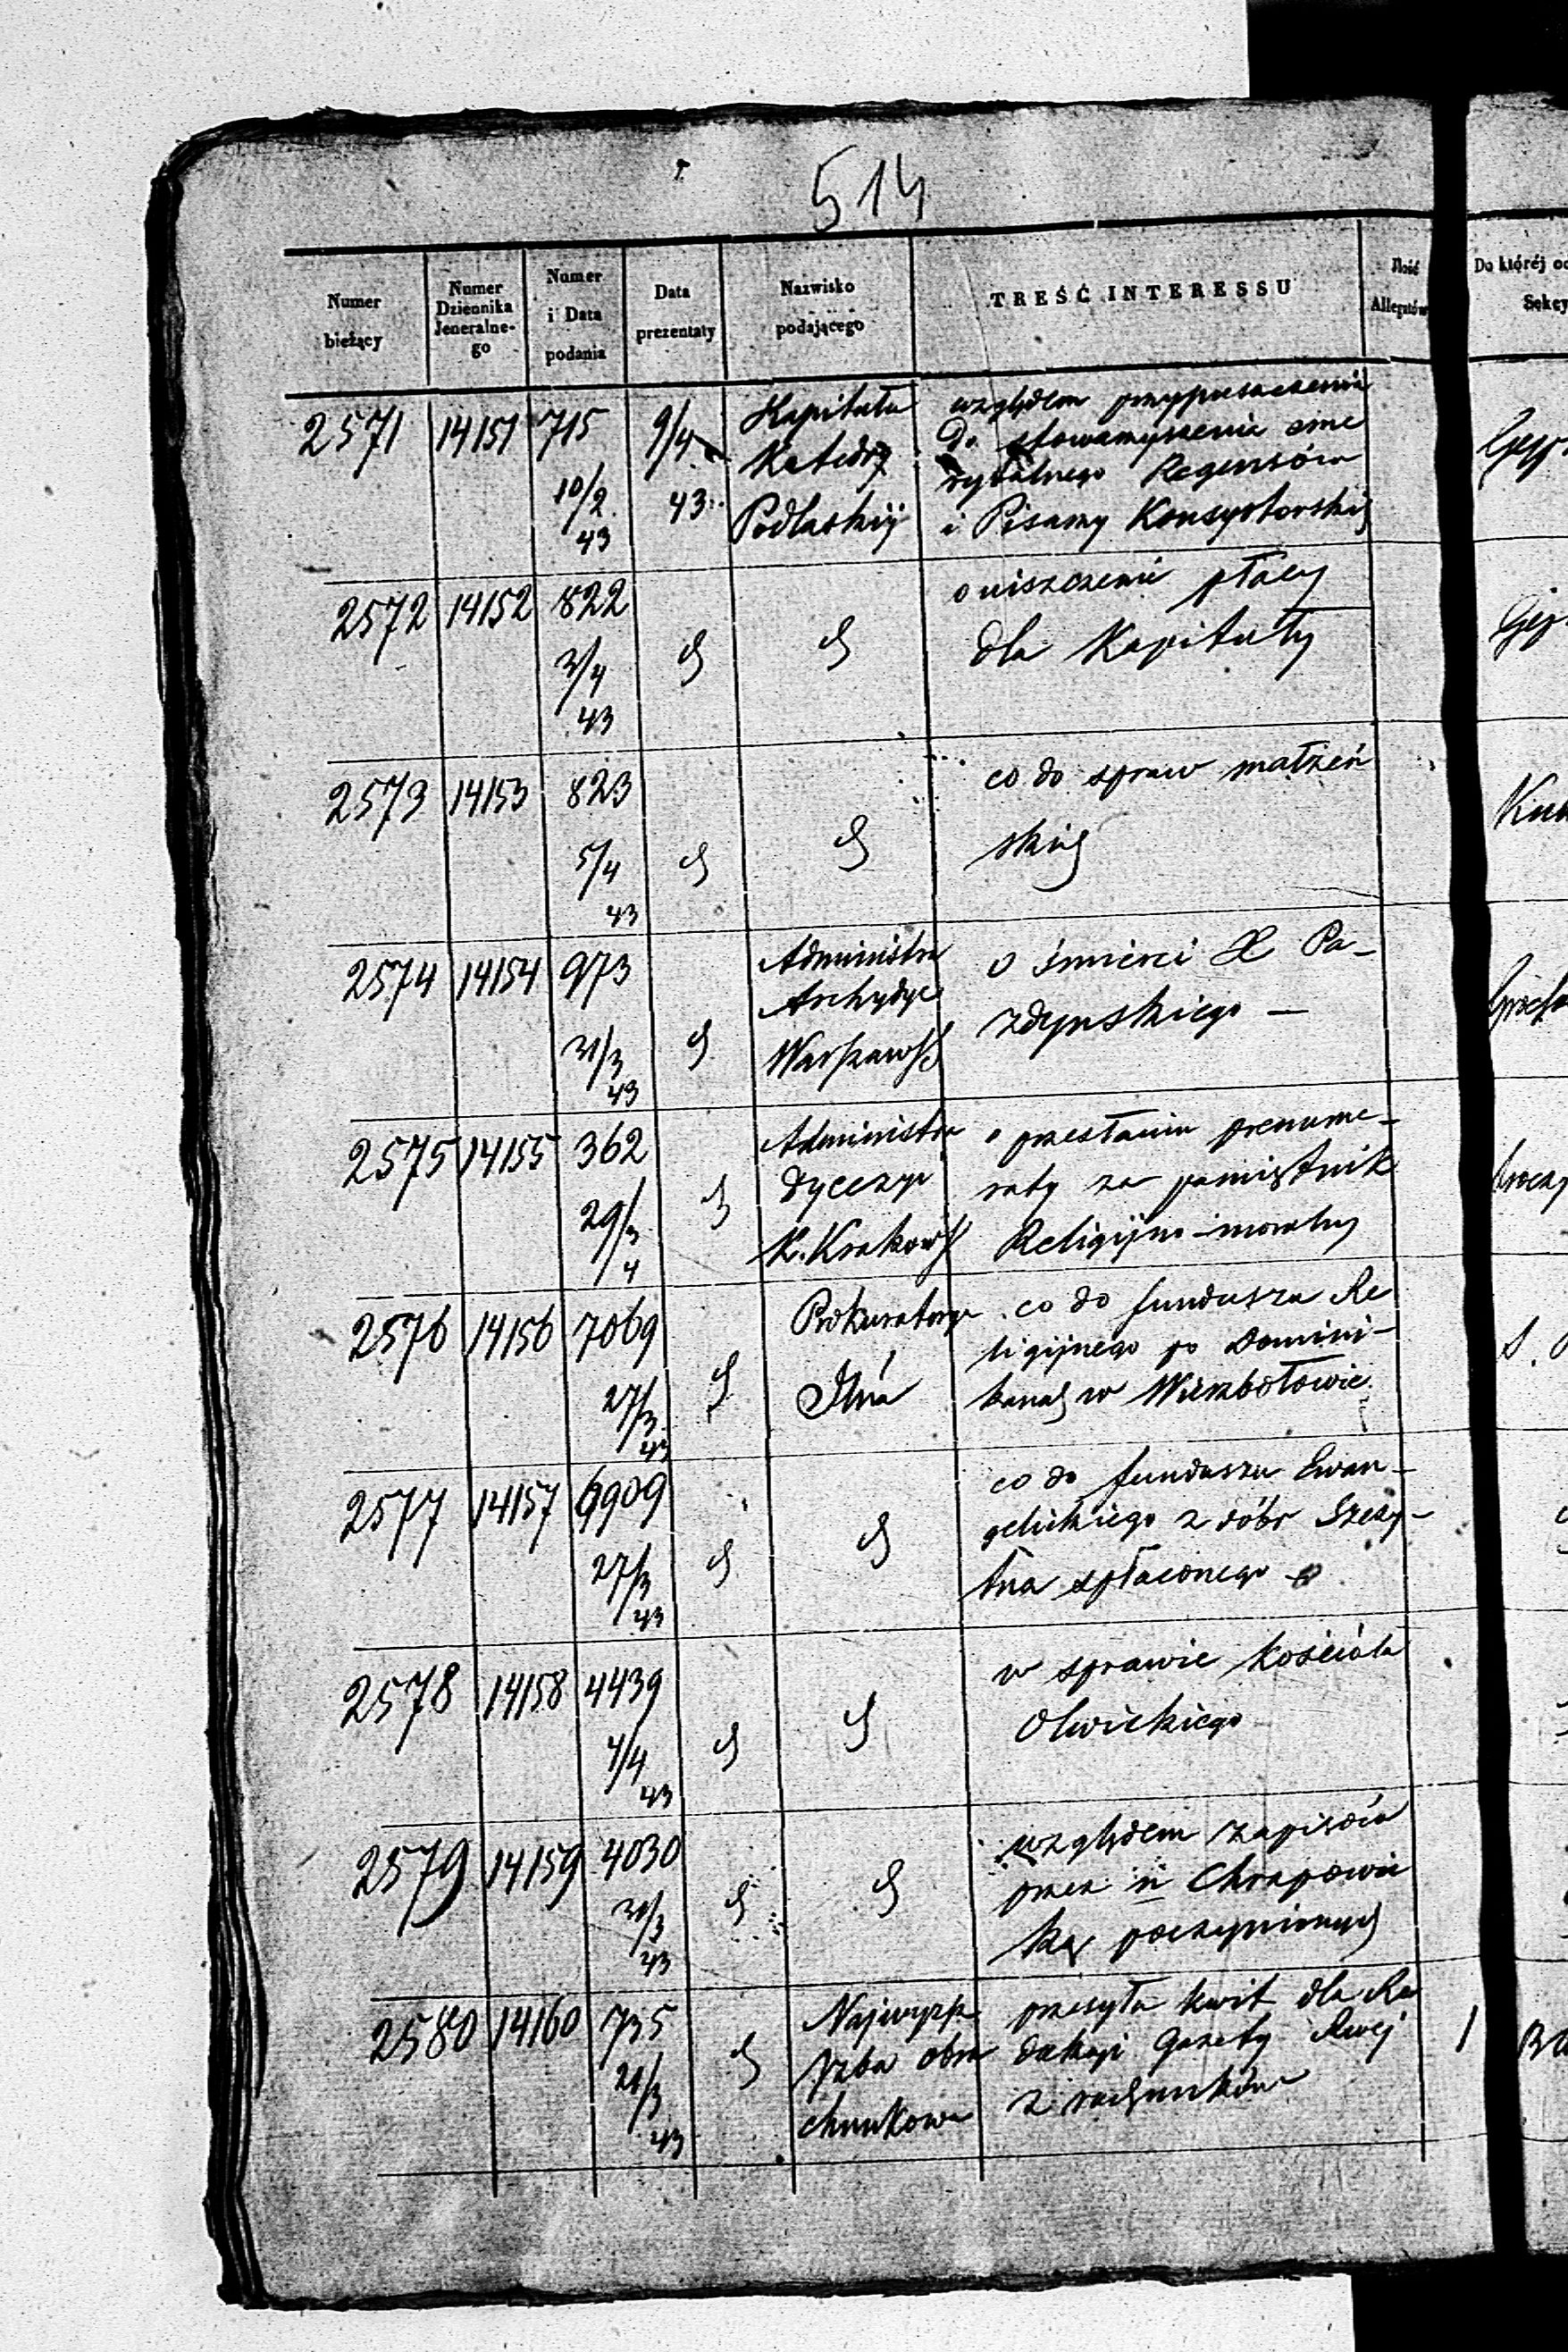 514
Numer bieżący | Numer Dziennika Jeneralne-go | Numer i Data podania | Data prezentaty | Nazwisko podającego | TREŚĆ INTERESSU | Ilość Allegatów | Do któréj od
Sekcy
2571 | 14151 | 715 10/2 43 | 9/4 43 | Kapituła | względem przypuszczenia
Katedry | do stowarzyszenia eme
Podlaskiej | rytalnego Regensów
i Pisarzy Konsystorskich
2572 | 14152 | 822 3/4 43 | d | d | o uiszczenie płacy
dla Kapituły
2573 | 14153 | 823 5/4 43 | d | d | co do spraw małżeń
skich
2574 | 14154 | 973 31/3 43 | d | Administra | o śmierci X Pa-
Archydyec | zdynskiego —
Warszawsk
2575 | 14155 | 362 29/3 4 | d | Administra | o przesłaniu prenume-
dyecezyi | raty za pamiętnik
K. Krakows | Religijno-moralny
2576 | 14156 | 7069 27/3 43 | d | Prokuratorya | co do funduszu Re
ligijnego po Domini-
kanach w Wierzbołowie
2577 | 14157 | 6909 27/3 43 | d | d | co do funduszu Ewan-
gelickiego z dóbr Szczy-
tna spłaconego
2578 | 14158 | 4439 4/4 43 | d | d | w sprawie Kościoła
Olwickiego
2579 | 14159 | 4030 30/3 43 | d | d | względem zapisów
przez Chrapowic
ką poczynionych
2580 | 14160 | 735 21/3 43 | d | Najwyższ | przesyła kwit dla Re | 1
Izba obra | dakcyi Gazety Rwej
chunkowa | z rachunków